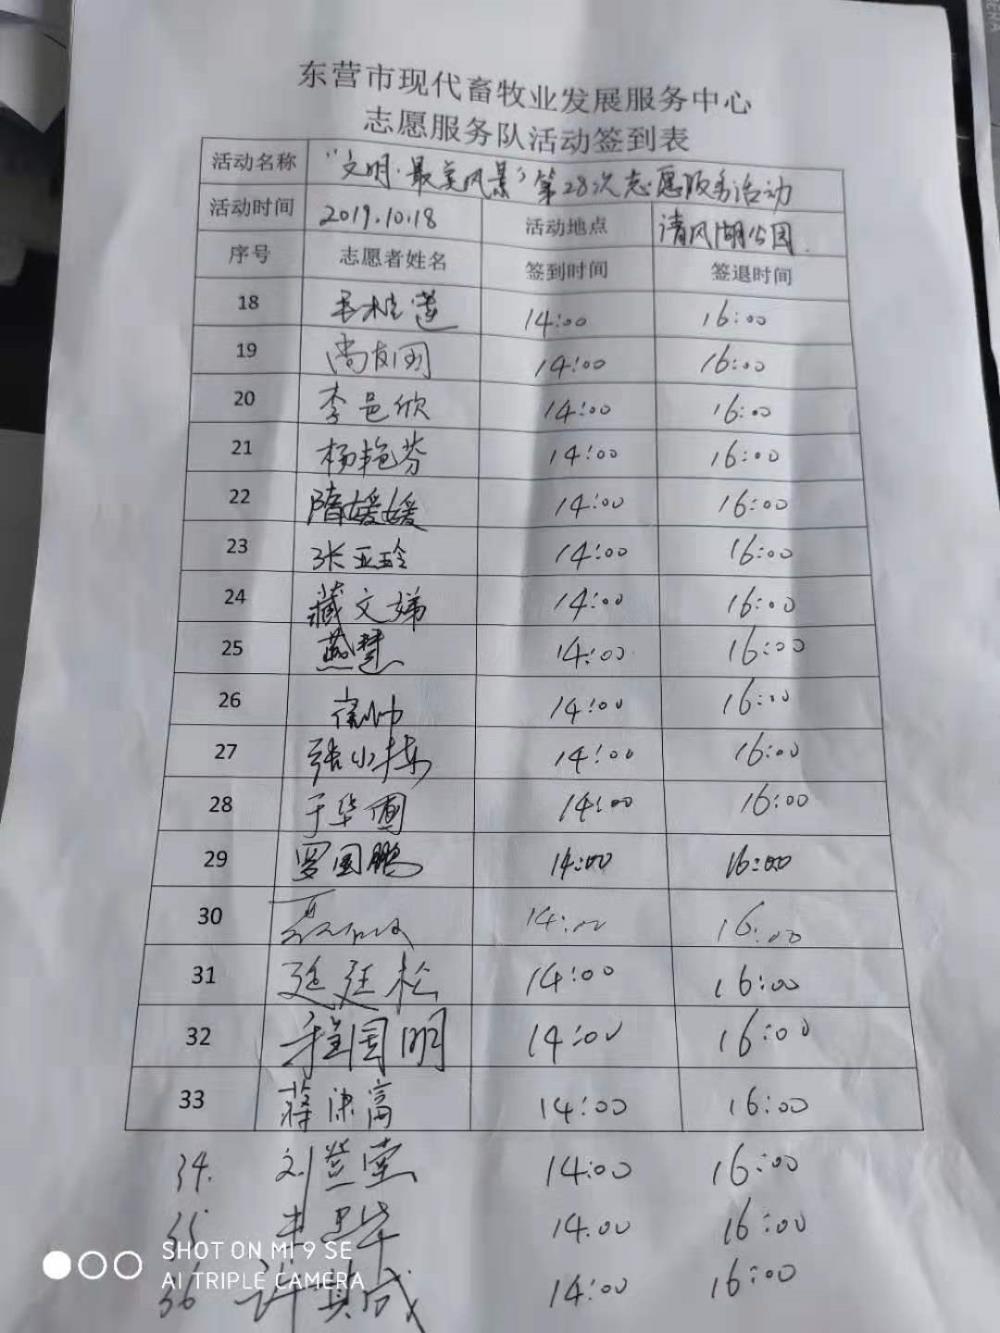 东营市现代畜牧业发展服务中心
志愿服务队活动签到表
活动名称 "文明·最美风景"第28次志愿服务活动
活动时间 2019.10.18 活动地点 清风湖公园
序号 志愿者姓名 签到时间 签退时间
18 14:00 16:00
19 尚友国 14:00 16:00
20 李邑欣 14:00 16:00
21 杨艳芬 14:00 16:00
22 隋媛媛 14:00 16:00
23 张亚玲 14:00 16:00
24 臧文娣 14:00 16:00
25 燕慧 14:00 16:00
26 14:00 16:00
27 张小栋 14:00 16:00
28 于华 14:00 16:00
29 罗国鹏 14:00 16:00
30 14:00 16:00
31 廷松 14:00 16:00
32 程国明 14:00 16:00
33 蒋 富 14:00 16:00
34. 刘登堂 14:00 16:00
35 14.00 16:00
36 许其成 14:00 16:00
SHOT ON MI 9 SE
AI TRIPLE CAMERA